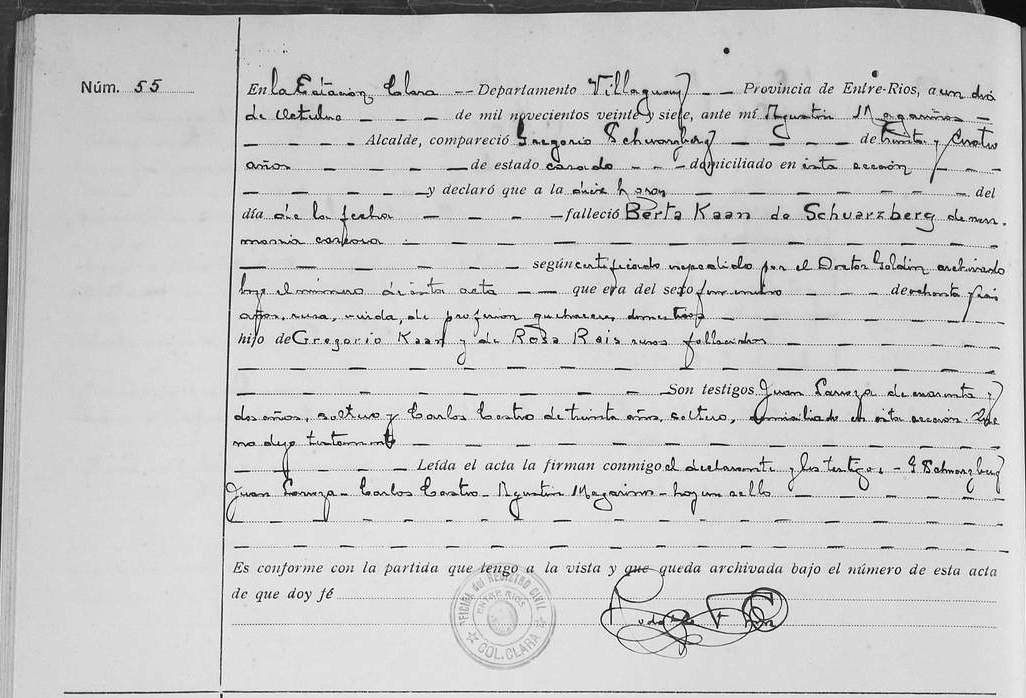 Núm. 55
En la Estación Clara -- Departamento Villaguay -- Provincia de Entre-Rios, a un dia
de Octubre --- de mil novecientos veinte y siete, ante mí Agustin Magariños -
---- Alcalde, compareció Gregorio Schwarzberg --- de treinta y cuatro
años ---- de estado casado --- domiciliado en esta sección ---
---- y declaró que a la diez horas ---- del
día de la fecha ---- falleció Berta Kaan de Schuarzberg de
---- según certificado expedido por el Doctor Goldin archivado
bajo el número de esta acta -- que era del sexo femenino --- de ochenta seis
años, rusa, viuda, de profesion quehaceres domesticos
hijo de Gregorio Kaan y de Rosa Rais rusos fallecidos ----
---- Son testigos Juan de cuarenta y
dos años, soltero y Carlos Castro de treinta años, soltero, domiciliado en esta sección. Que
no dejo testamento ----
---- Leída el acta la firman conmigo el declarante y los testigos - G Schwarzberg
Juan - Carlos Castro - Agustin Magariños - hay un sello ----
Es conforme con la partida que tengo a la vista y que queda archivada bajo el número de esta acta
de que doy fé
OFICINA DE REGISTRO CIVIL
ENTRE RIOS
COL. CLARA